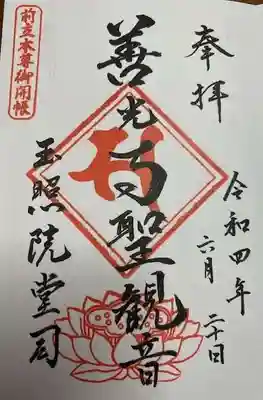 奉拝
令和四年
六月二十日
善光寺聖観音
前立本尊御開帳
玉照院堂司